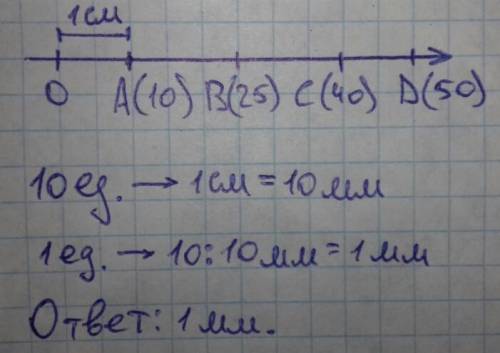 1см
0 A(10) B(25) C(40) D(50)
10ед. → 1см = 10мм
1ед. → 10:10мм = 1мм
Ответ: 1мм.